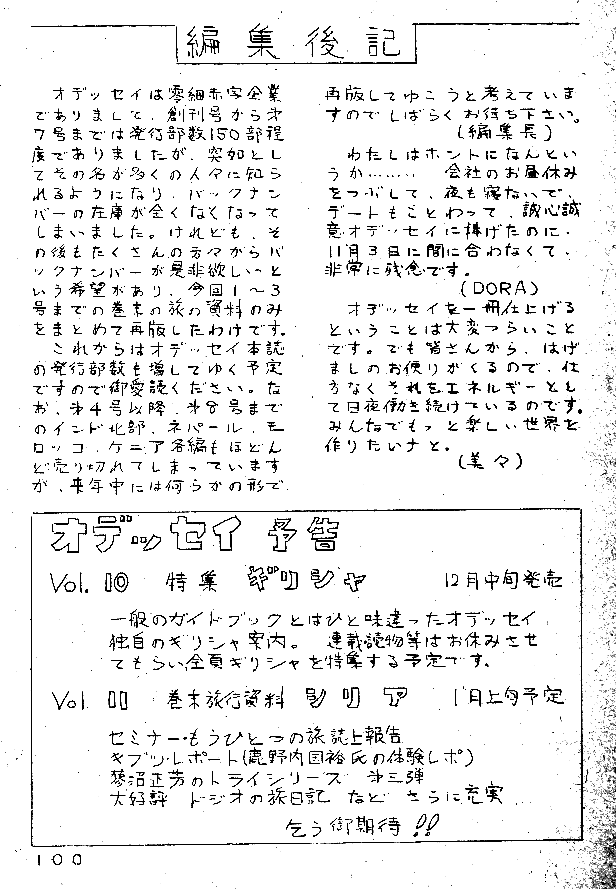 編集後記
オデッセイは零細赤字企業
でありまして、創刊号から才
7号までは発行部数150部程
度でありましたが、突如とし
てその名が多くの人々に知ら
れるようになり、バックナン
バーの在庫が全くなくなって
しまいました。けれども、そ
の後もたくさんの方々からバ
ックナンバーが是非欲しいと
いう希望があり、今回1〜3
号までの巻末の旅の資料のみ
をまとめて再版したわけです。
これからはオデッセイ本誌
の発行部数も増してゆく予定
ですので御愛読ください。な
お、才4号以降、才8号まで
のインド北部、ネパール、モ
ロッコ、ケニア各編もほどん
ど売り切れてしまっています
が、来年中には何らかの形で
再版してゆこうと考えていま
すのでしばらくお待ち下さい。
(編集長)
わたしはホントになんとい
うか‥‥‥ 会社のお昼休み
をつぶして、夜も寝ないで、
デートもことわって、誠心誠
意オデッセイに捧げたのに、
11月3日に間に合わなくて、
非常に残念です。
(DORA)
オデッセイを一冊仕上げる
ということは大変つらいこと
です。でも皆さんから、はげ
ましのお便りがくるので、仕
方なくそれをエネルギーとし
て日夜働き続けているのです。
みんなでもっと楽しい世界を
作りたいナと。
(美々)
オデッセイ 予告
Vol. 10 特集 ギリシャ 12月中旬発売
一般のガイドブックとはひと味違ったオデッセイ
独自のギリシャ案内。 連載読物等はお休みさせ
てもらい全頁ギリシャを特集する予定です。
Vol. 11 巻末旅行資料 シリア 1月上旬予定
セミナー・もうひとつの旅誌上報告
キブツ・レポート(鹿野内国裕氏の体験レポ)
蓼沼正芳のトライシリーズ 才三弾
大好評 トシオの旅日記 など さらに充実
乞う御期待!!
100